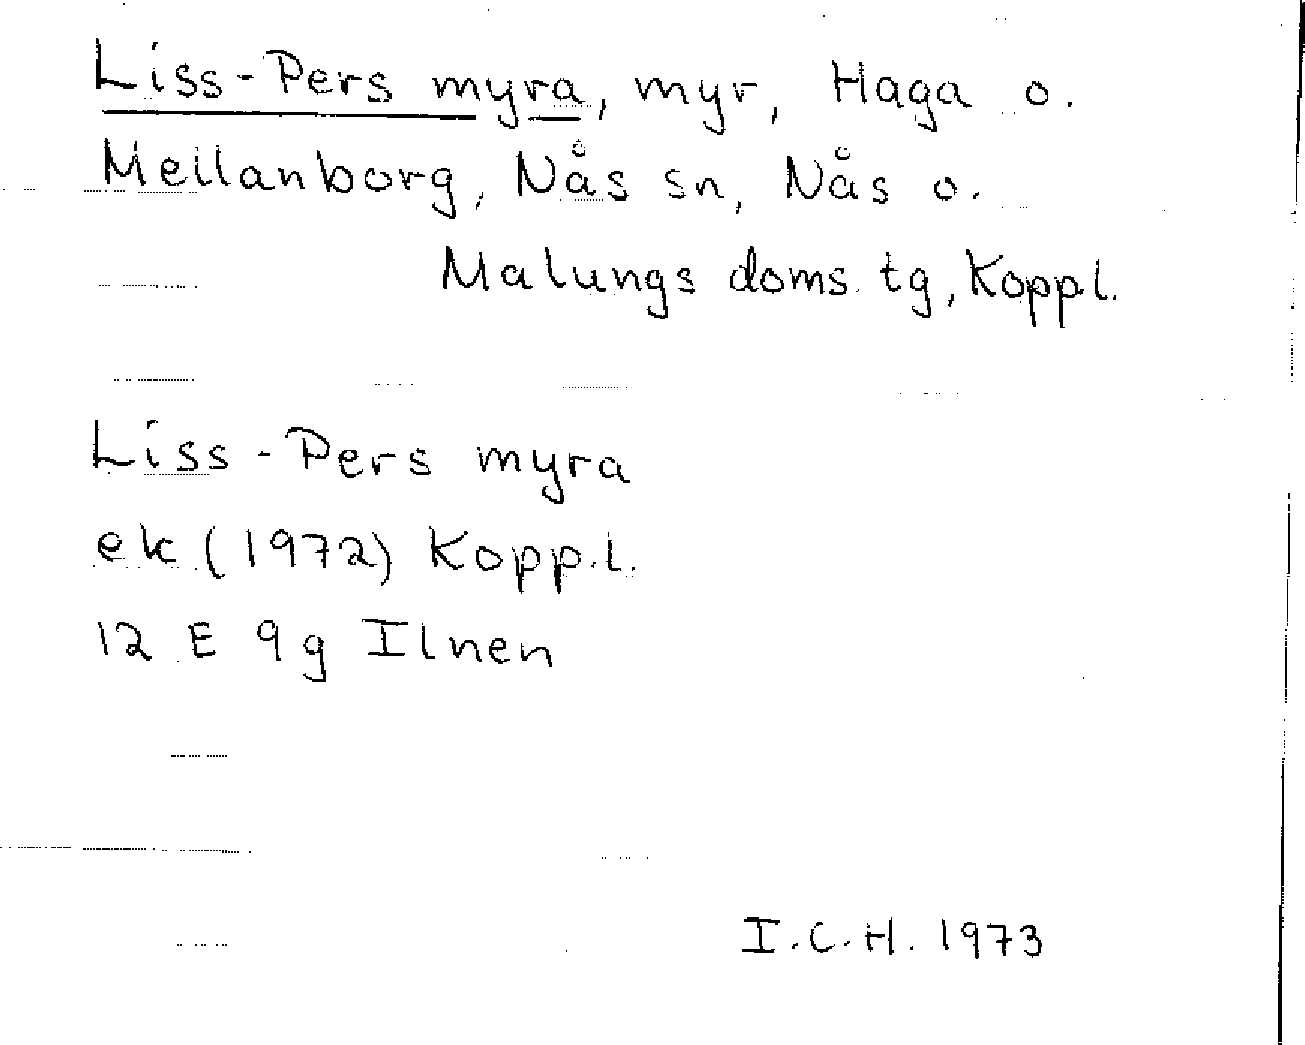 Liss-Pers myra, myr, Haga o.
Mellanborg, Nås sn, Nås o.
Malungs doms. tg, Koppl.
Liss-Pers myra
ek (1972) Kopp.l.
12 E 9g Ilnen
I.C.H. 1973